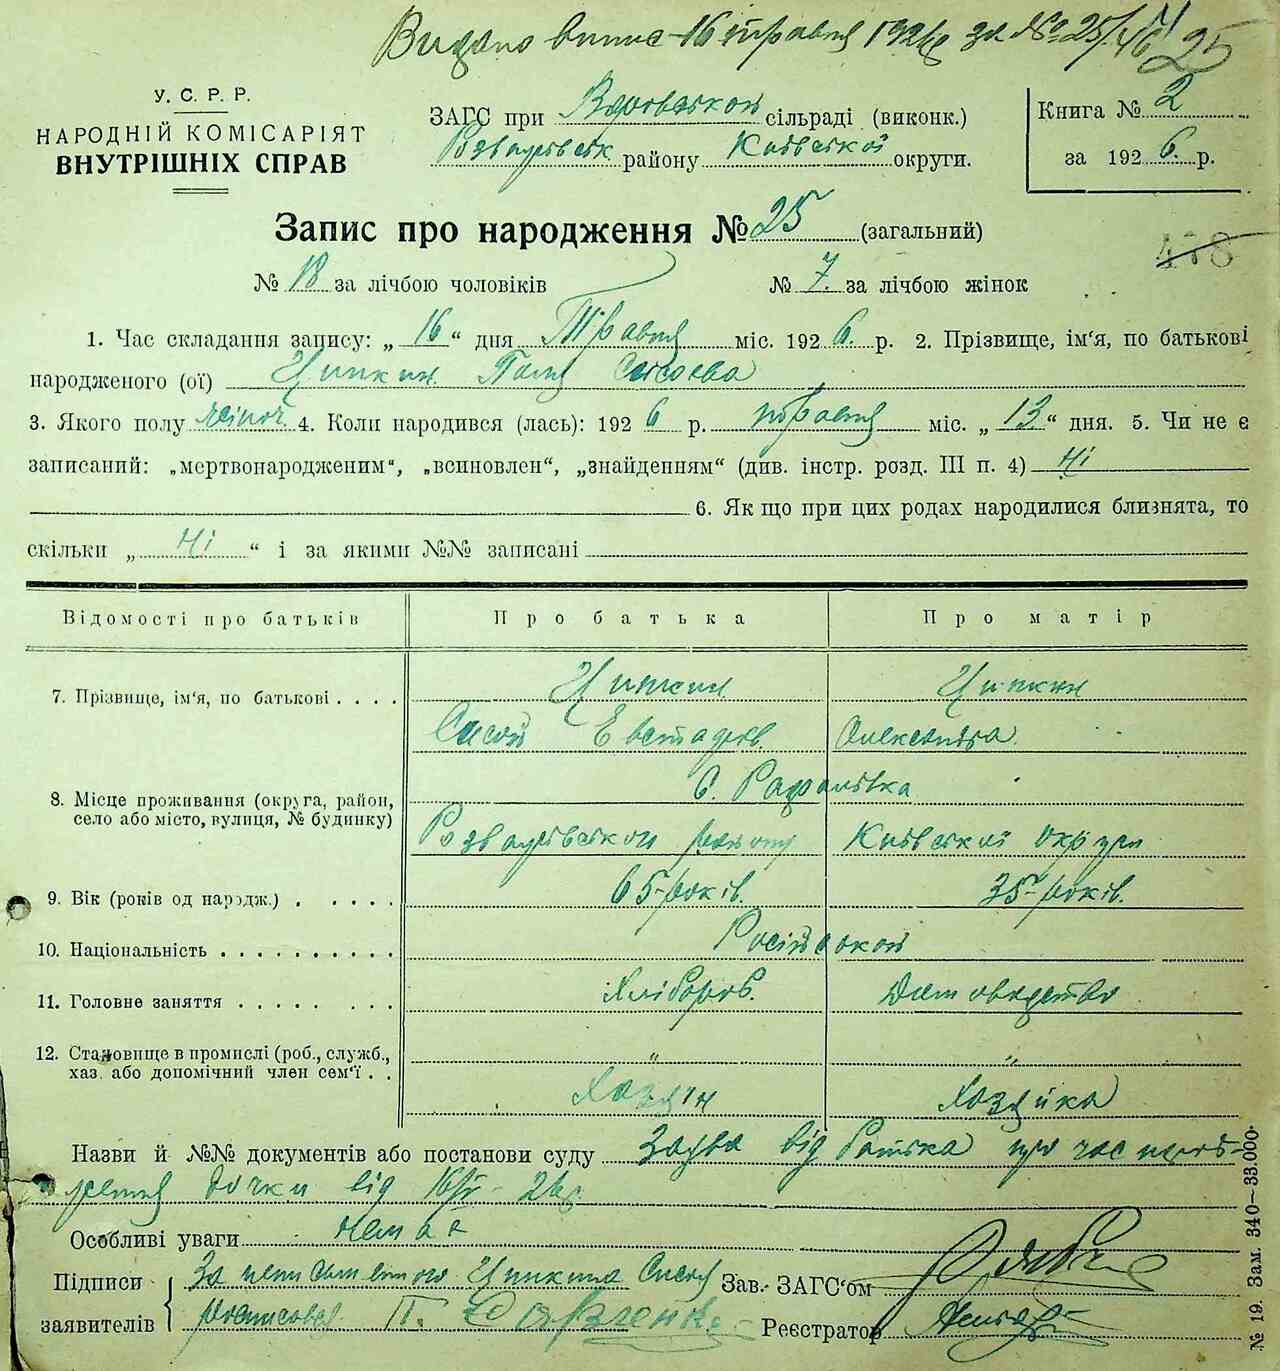 Видано випис 16 травня 1926 р. за № 25/
25
У. С. Р. Р.
НАРОДНІЙ КОМІСАРІЯТ
ВНУТРІШНІХ СПРАВ
ЗАГС при сільраді (виконк.)
району Київської округи.
Книга № 2
за 1926 р.
Запис про народження № 25 (загальний)
478
№ 18 за лічбою чоловіків № 7 за лічбою жінок
1. Час складання запису: „ 16 “ дня Травня міс. 1926 р. 2. Прізвище, ім'я, по батькові
народженого (ої) Ципкин Сисоева
3. Якого полу жіноч. 4. Коли народився (лась): 1926 р. травня міс. „ 13 “ дня. 5. Чи не є
записаний: „мертвонародженим“, „всиновлен“, „знайденням“ (див. інстр. розд. III п. 4) Ні
6. Як що при цих родах народилися близнята, то
скільки „ Ні “ і за якими №№ записані
Відомості про батьків Про батька Про матір
7. Прізвище, ім'я, по батькові . . . . Ципкин Ципкин
Сисой Александра
8. Місце проживання (округа, район,
село або місто, вулиця, № будинку)
с. Рафалівка
Розважівського району Київської округи
9. Вік (років од народж.) . . . . . . 65 років. 35 років.
10. Національність . . . . . . . . . . Російской
11. Головне заняття . . . . . . . Хлібороб. Домоводство
12. Становище в промислі (роб., служб.,
хаз. або допомічний член сем'ї . .
„ „
Хазяїн Хазяйка
Назви й №№ документів або постанови суду Заява від батька про час народ-
ження дочки від 16/V 26 р.
Особливі уваги немає
Підписи
заявителів
За неписьменного Ципкина Сисоя
росписався П.
Зав. ЗАГС'ом
Реєстратор
№ 19. Зам. 340—33.000.